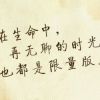 在生命中，
再无聊的时光
也都是限量版。